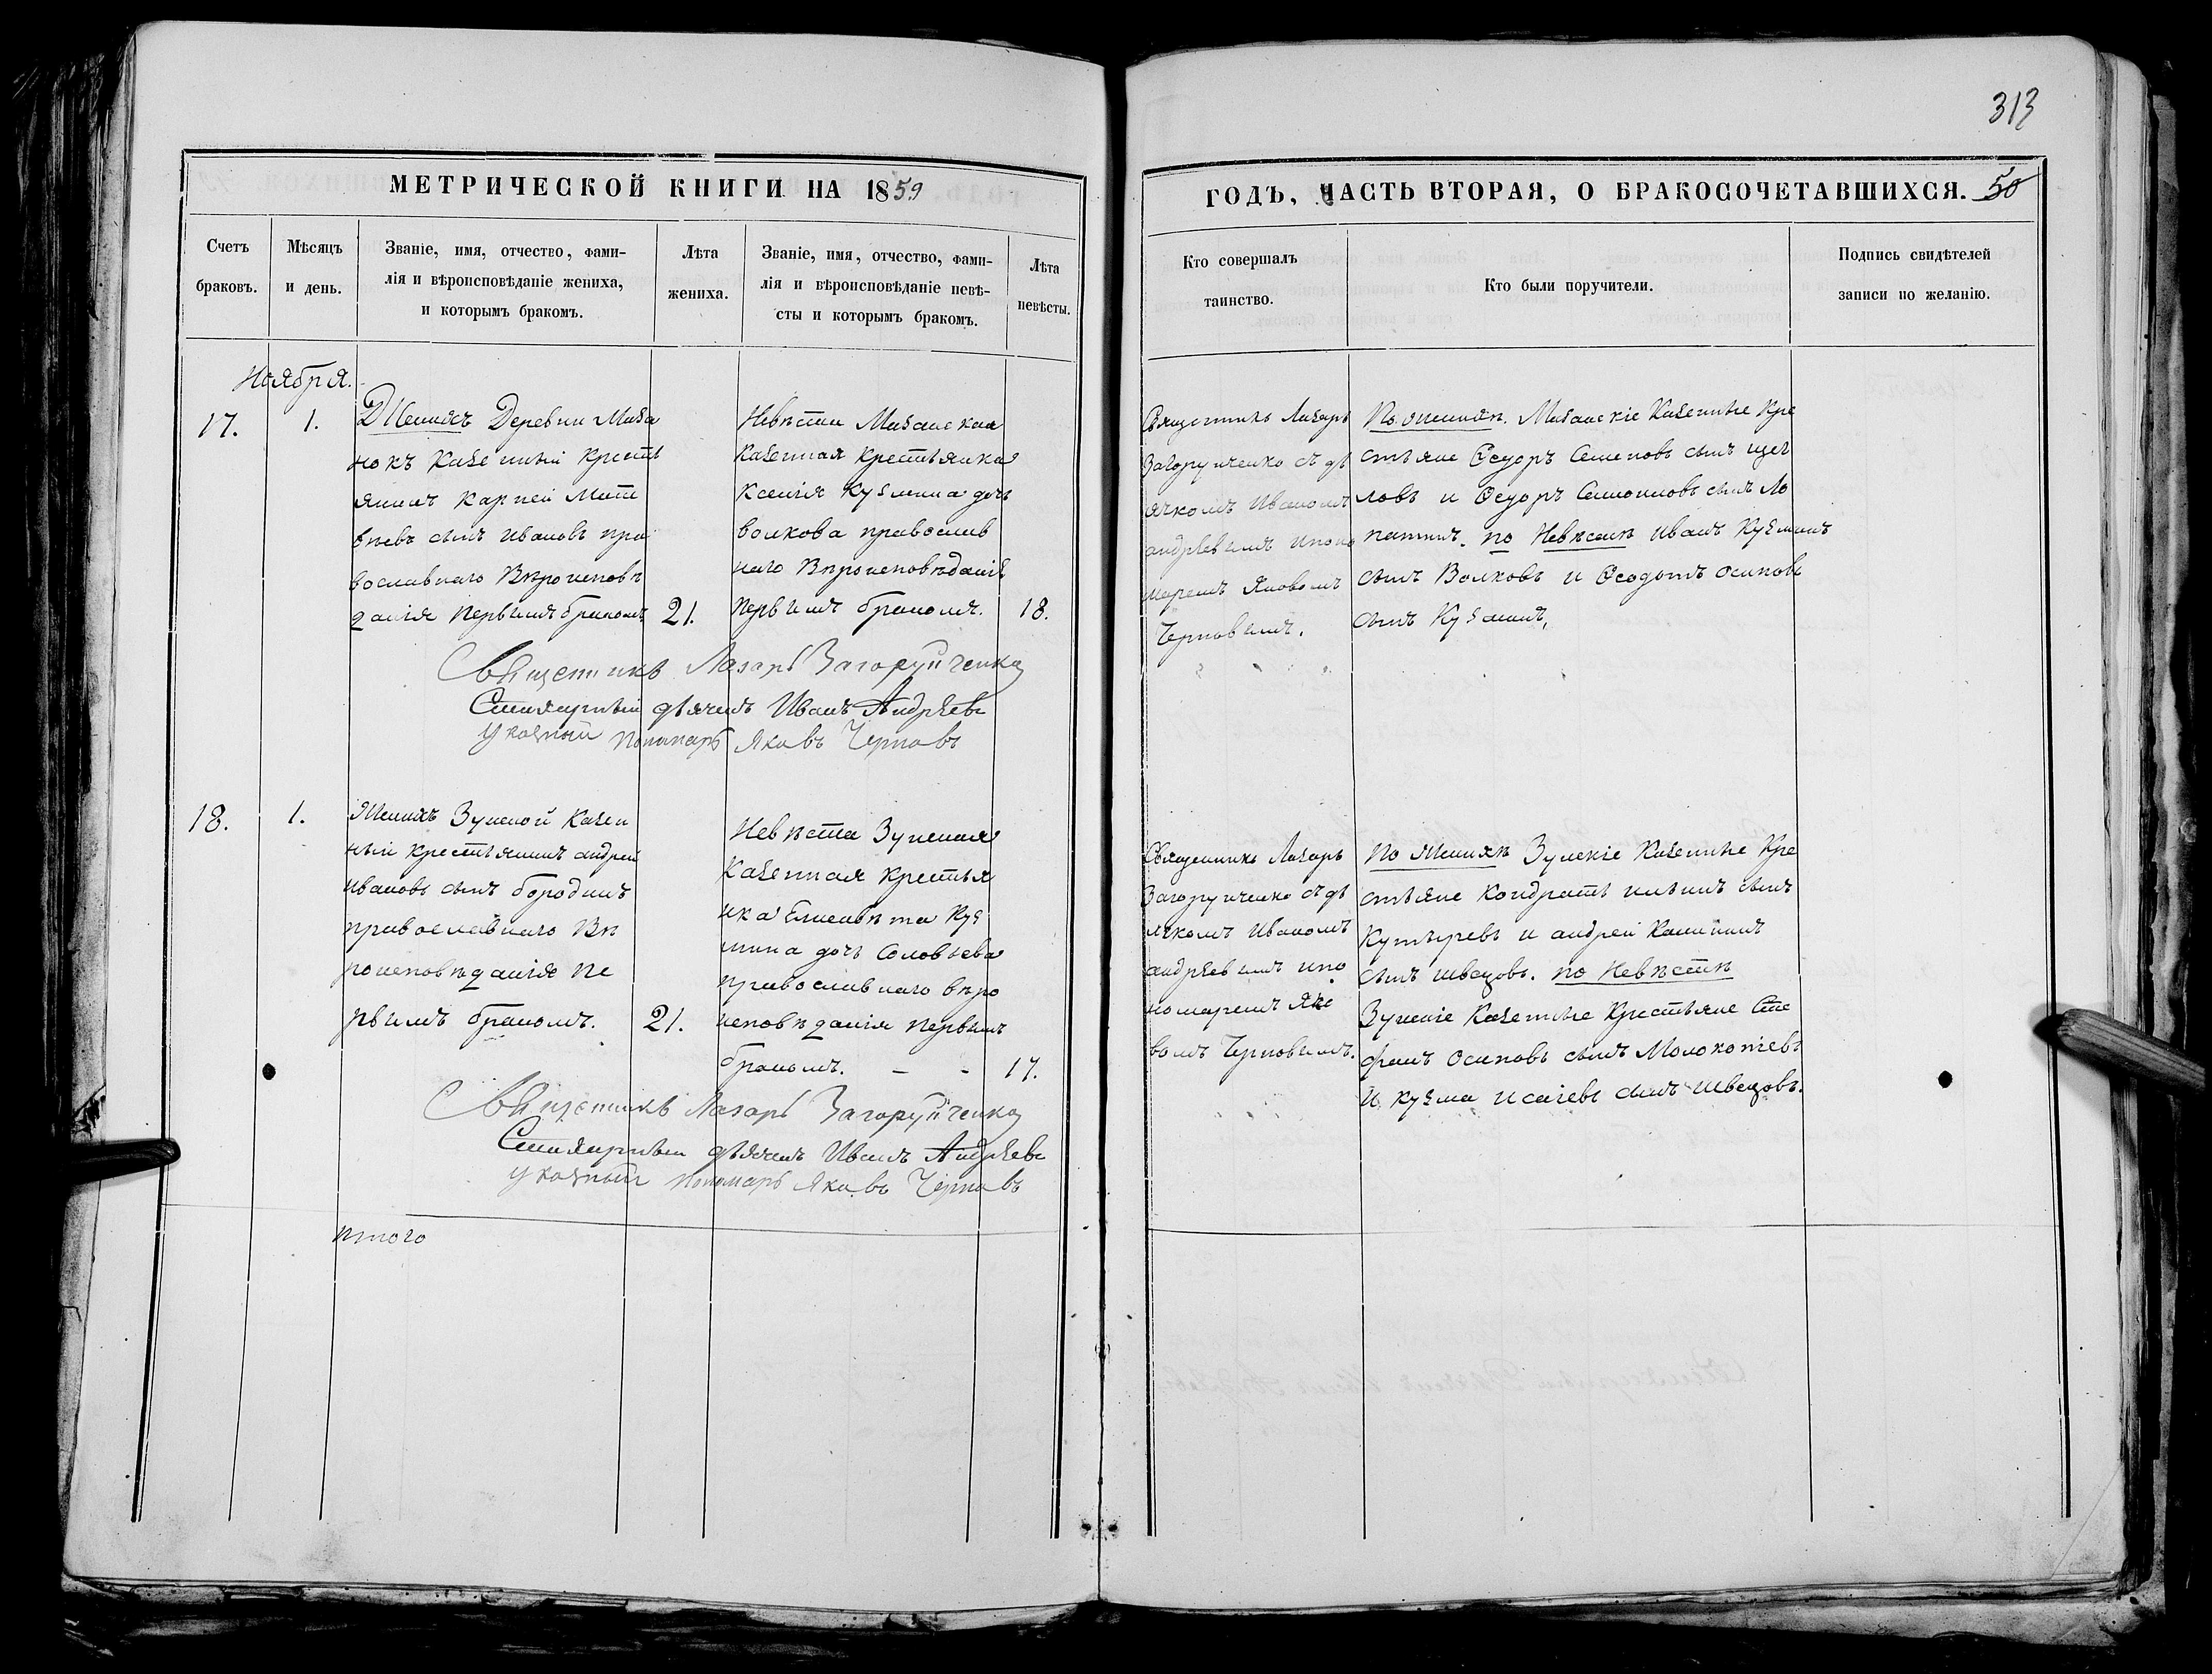 313
МЕТРИЧЕСКОЙ КНИГИ НА 1859
ГОДЪ, ЧАСТЬ ВТОРАЯ, О БРАКОСОЧЕТАВШИХСЯ. 50
Счетъ браковъ.
Мѣсяцъ и день.
Званіе, имя, отчество, фами-
лія и вѣроисповѣданіе жениха,
и которымъ бракомъ.
Лѣта жениха.
Званіе, имя, отчество, фами-
лія и вѣроисповѣданіе невѣ-
сты и которымъ бракомъ.
Лѣта невѣсты.
Кто совершалъ
таинство.
Кто были поручители.
Подпись свидѣтелей
записи по желанію.
Ноября.
17.
1.
Женихъ Деревни Миза
нокъ Казенный Кресть
янинъ Карпей Мате
вѣевъ сынъ Ивановъ пра
вославнаго Вѣроисповѣ
данія первымъ бракомъ
21.
Невѣста Мизанская
Казенная Крестьянка
Ксенія Кузмина дочь
Волкова православ
наго Вѣроисповѣданія
первымъ бракомъ.
18.
Священникъ Лазарь
Загоруйченко съ дь
ячкомъ Иваномъ
Андрѣевымъ и поно
маремъ Яковомъ
Черновымъ.
По женихѣ. Мизанскіе Казенные Кре
стьяне Ѳедоръ Семеновъ сынъ Щег
ловъ и Ѳедоръ Самоиловъ сынъ Ло
патинъ. по Невѣстѣ Иванъ Кузминъ
сынъ Волковъ и Ѳеодотъ Осиповъ
сынъ Кузминъ,
Священникъ Лазарь Загоруйченко
дьячекъ Иванъ Андрѣевъ
указный Пономарь Яковъ Черновъ
18.
1.
Женихъ Зушеной Казен
ный крестьянинъ андрей
Ивановъ сынъ бородинъ
православнаго Вѣ
роисповѣданія пе
рвымъ бракомъ.
21.
Невѣста Зушеная
Казенная Крестья
нка Елисавѣта Куз
мина дочь Соловьева
православнаго вѣро
исповѣданія первымъ
бракомъ. - -
17.
Священникъ Лазарь
Загоруйченко съ дь
ячкомъ Иваномъ
андрѣевымъ и по
номаремъ Яко
вомъ Черновымъ.
По Женихѣ Зушекіе Казенные Кре
стьяне Кондратъ ильинъ сынъ
Кутыревъ и андрей
сынъ швецовъ. по Невѣстѣ
Зушекіе Казенные Крестьяне Сте
фанъ Осиповъ сынъ Молокотевъ
и Кузма Исаіевъ сынъ Швецовъ.
Священникъ Лазарь Загоруйченко
дьячекъ Иванъ Андрѣевъ
указный Пономарь Яковъ Черновъ
итого